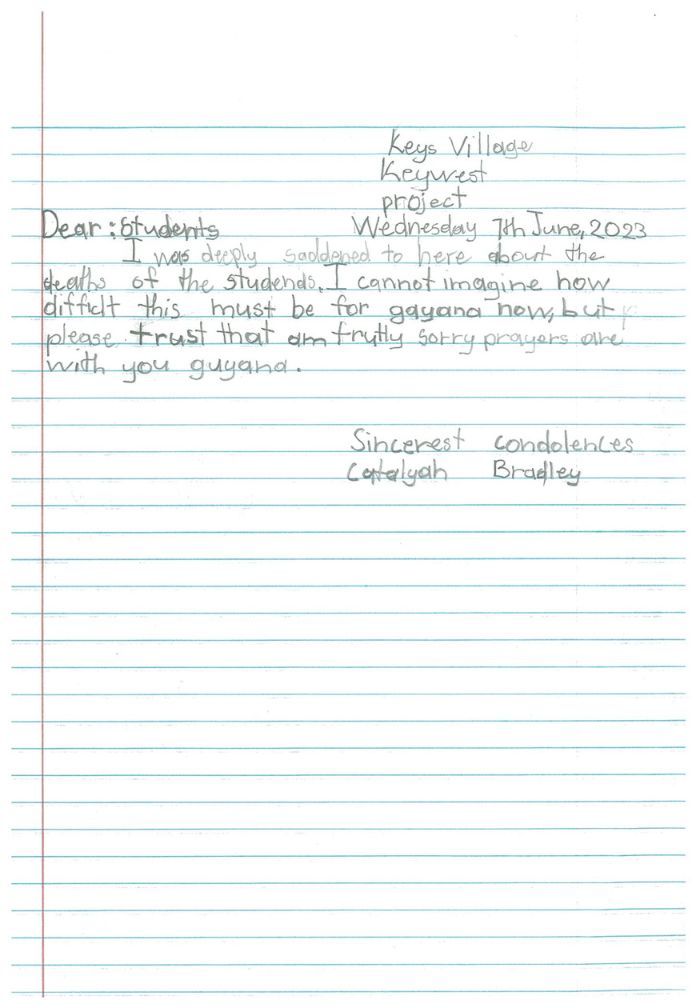 Keys Village
Keywest
project
Dear: Students Wednesday 7th June, 2023
I was deeply saddened to here about the
deaths of the students. I cannot imagine how
difficlt this must be for gayana now, but
please trust that am frutly sorry prayers are
with you guyana.
Sincerest condolences
Catalyah Bradley